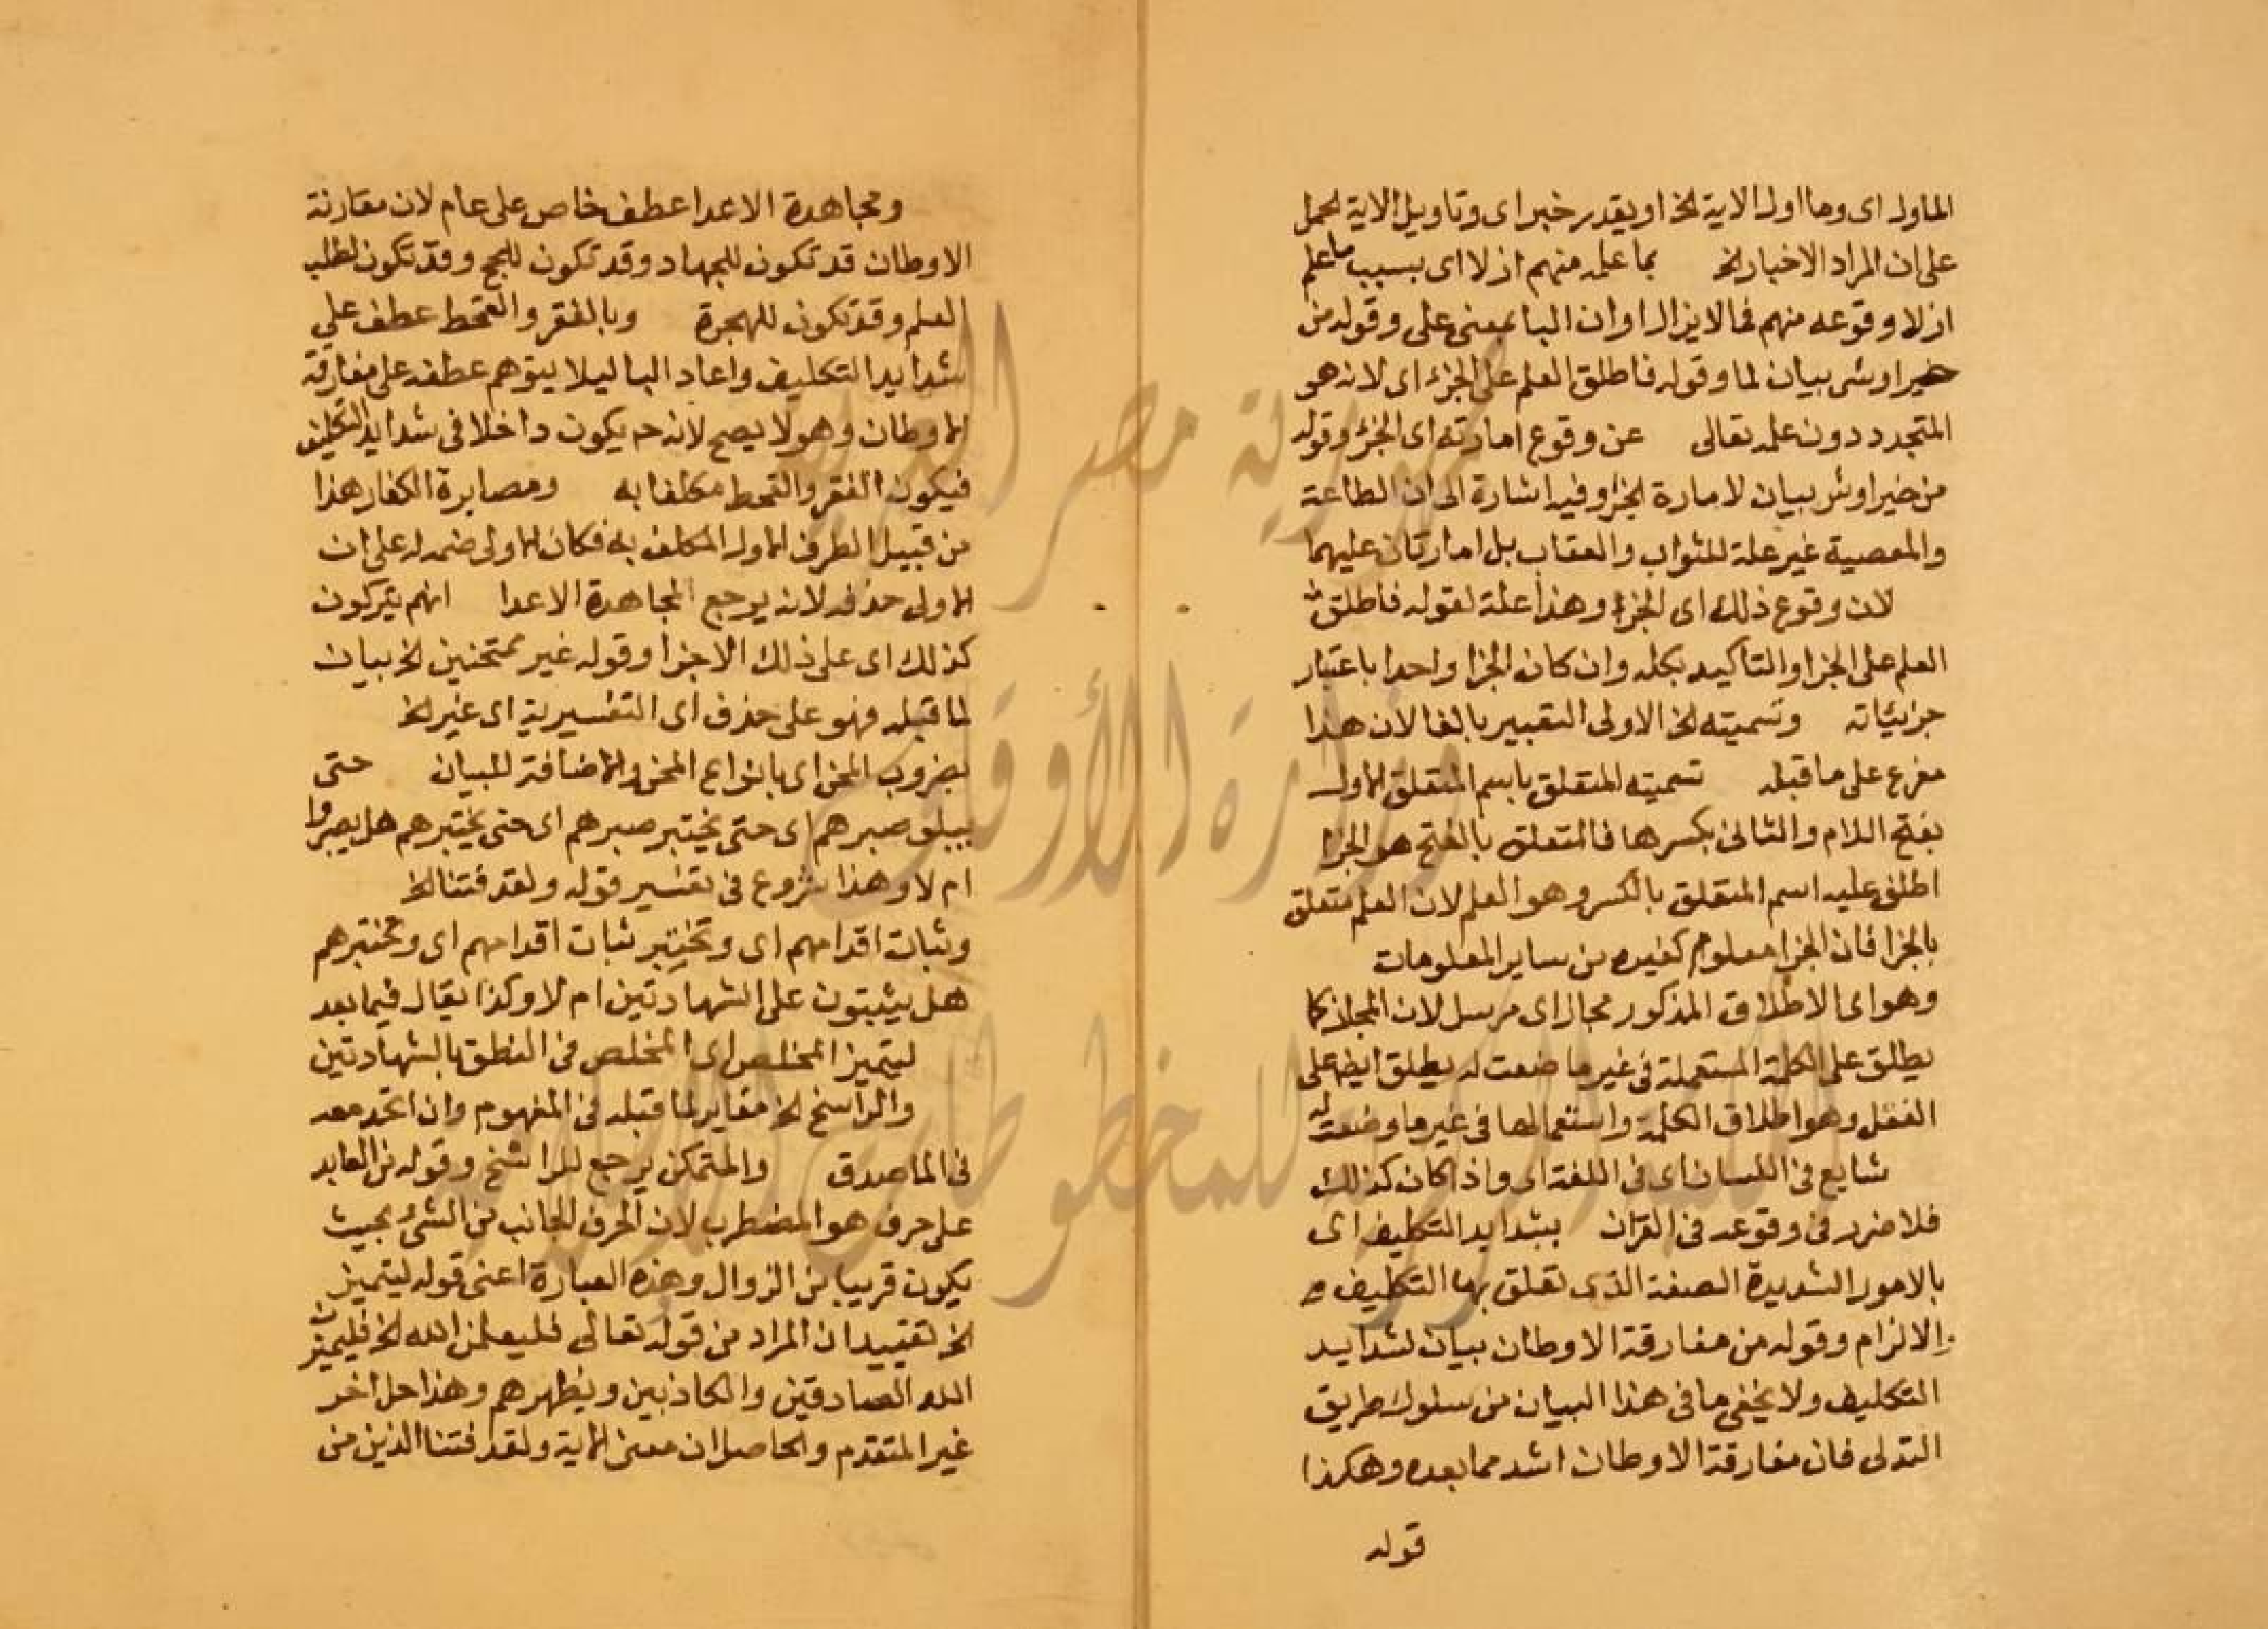 الماوله اى وما اوله الاية الخ او يقدر خبر اى وتاويل الاية لحمل
على ان المراد الاخبار الخ بما علمه منهم ازلا اى بسبب ما علم
ازلا وقوعه منهم فمالا يزال او ان البا بمعنى على وقوله من
خير او شر بيان لما وقوله فاطلق العلم على الجزء اى لانه هو
المتجدد دون علمه تعالى عن وقوع امارته اى الجزء وقوله
من خير او شر بيان لامارة الجزء وفيه اشارة الى ان الطاعة
والمعصية غير علة للثواب والعقاب بل امارتان عليهما
لان وقوع ذلك اى الجزء وهذا علة لقوله فاطلق
العلم على الجزا والتاكيد بكله وان كان الجزا واحدا باعتبار
جزئياته وتسميته الخ الاولى التعبير بالفا لان هذا
مفرع على ما قبله تسميته المتعلق باسم المتعلق الاول
بفتح اللام والثانى بكسرها فالمتعلق بالفتح هو الجزا
اطلق عليه اسم المتعلق بالكسر وهو العلم لان العلم متعلق
بالجزا فان الجزا معلوم كغيره من ساير المعلومات
وهو اى الاطلاق المذكور مجاز اى مرسل لان المجاز كما
يطلق على الكلمة المستعملة فى غير ما وضعت له يطلق ايضا على
الفعل وهو اطلاق الكلمة واستعمالها فى غير ما وضعت له
شايع فى اللسان اى فى اللغة اى واذا كان كذلك
فلا ضرر فى وقوعه فى القران بشدايد التكليف اى
بالامور الشديدة الصعبة الذى تعلق بها التكليف
والالزام وقوله من مفارقة الاوطان بيان لشدايد
التكليف ولا يخفى ما فى هذا البيان من سلوك طريق
التدلى فان مفارقة الاوطان اشد مما بعده وهكذا
قوله
ومجاهدة الاعدا عطف خاص على عام لان مقارنة
الاوطان قد تكون للجهاد وقد تكون للحج وقد تكون لطلب
العلم وقد تكون للهجرة وبالفقر والقحط عطف على
شدايد التكليف واعاد البا ليلا يتوهم عطفه على مفارقة
الاوطان وهو لا يصح لانه ح يكون داخلا فى شدايد التكليف
فيكون الفقر والقحط مكلفا به ومصابرة الكفار هذا
من قبيل الطرف الاول المكلف به فكان الاولى ضمه له على ان
الاولى حذفه لانه يرجع لمجاهدة الاعدا انهم يتركون
كذلك اى على ذلك الاجزا وقوله غير ممتحنين الخ بيان
لما قبله فهو على حذف اى التفسيرية اى غير الخ
بضروب المحن اى بانواع المحن والاضافة للبيان حتى
يبلو صبرهم اى حتى يختبر صبرهم اى حتى يختبرهم هل يصبروا
ام لا وهذا شروع فى تفسير قوله ولقد فتنا الخ
وثبات اقدامهم اى ويختبر ثبات اقدامهم اى ويختبرهم
هل يثبتون على الشهادتين ام لا وكذا يقال فيما بعد
ليتميز المخلص اى المخلص فى النطق بالشهادتين
والراسخ الخ مغاير لما قبله فى المفهوم وان اتحد معه
فى الماصدق والمتمكن يرجع للراسخ وقوله من العابد
على حرف هو المضطرب لان الحرف الجانب من الشئ بحيث
يكون قريبا من الزوال وهذه العبارة اعنى قوله ليتميز
الخ تقتييد ان المراد من قوله تعالى فليعلمن الله الخ فليميزن
الله الصادقين والكاذبين ويظهرهم وهذا حل اخر
غير المتقدم والحاصل ان معنى الاية ولقد فتنا الذين من